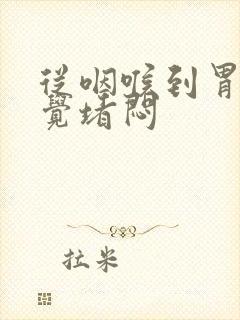 從咽喉到胃
覺堵悶
拉米